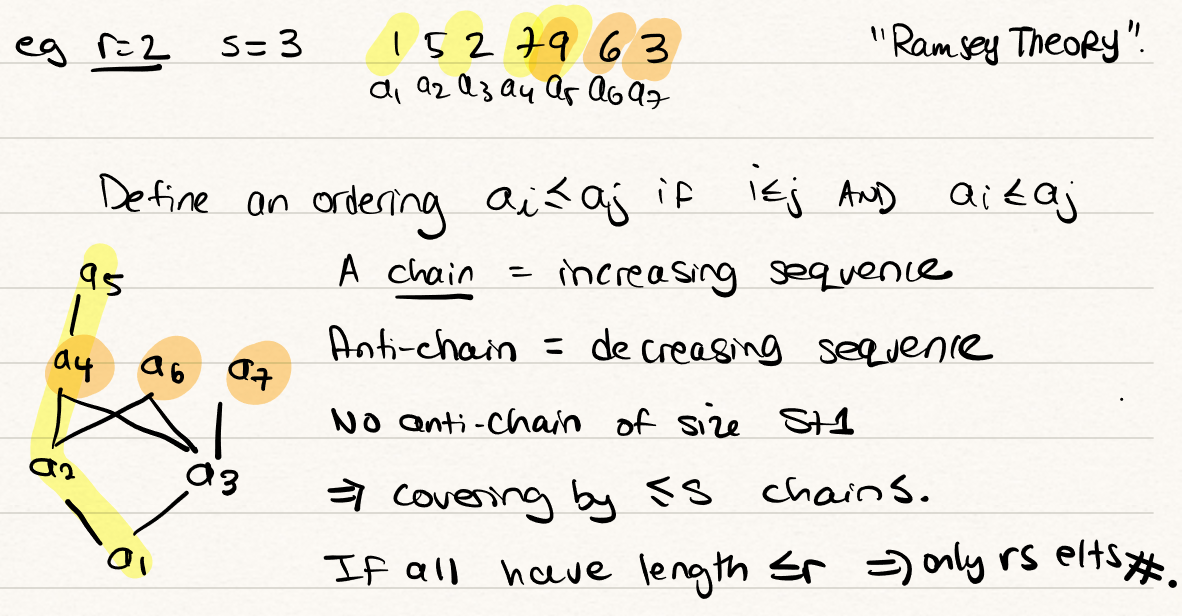 eg r=2 s=3 1 5 2 7 9 6 3 "Ramsey Theory".
a₁ a₂ a₃ a₄ a₅ a₆ a₇
Define an ordering aᵢ ≤ aⱼ if i≤j AND aᵢ ≤ aⱼ
a₅
A chain = increasing sequence
a₄ a₆ a₇
Anti-chain = decreasing sequence
No anti-chain of size s+1
a₂ a₃
⇒ covering by ≤s chains.
a₁
If all have length ≤r ⇒ only rs elts #.